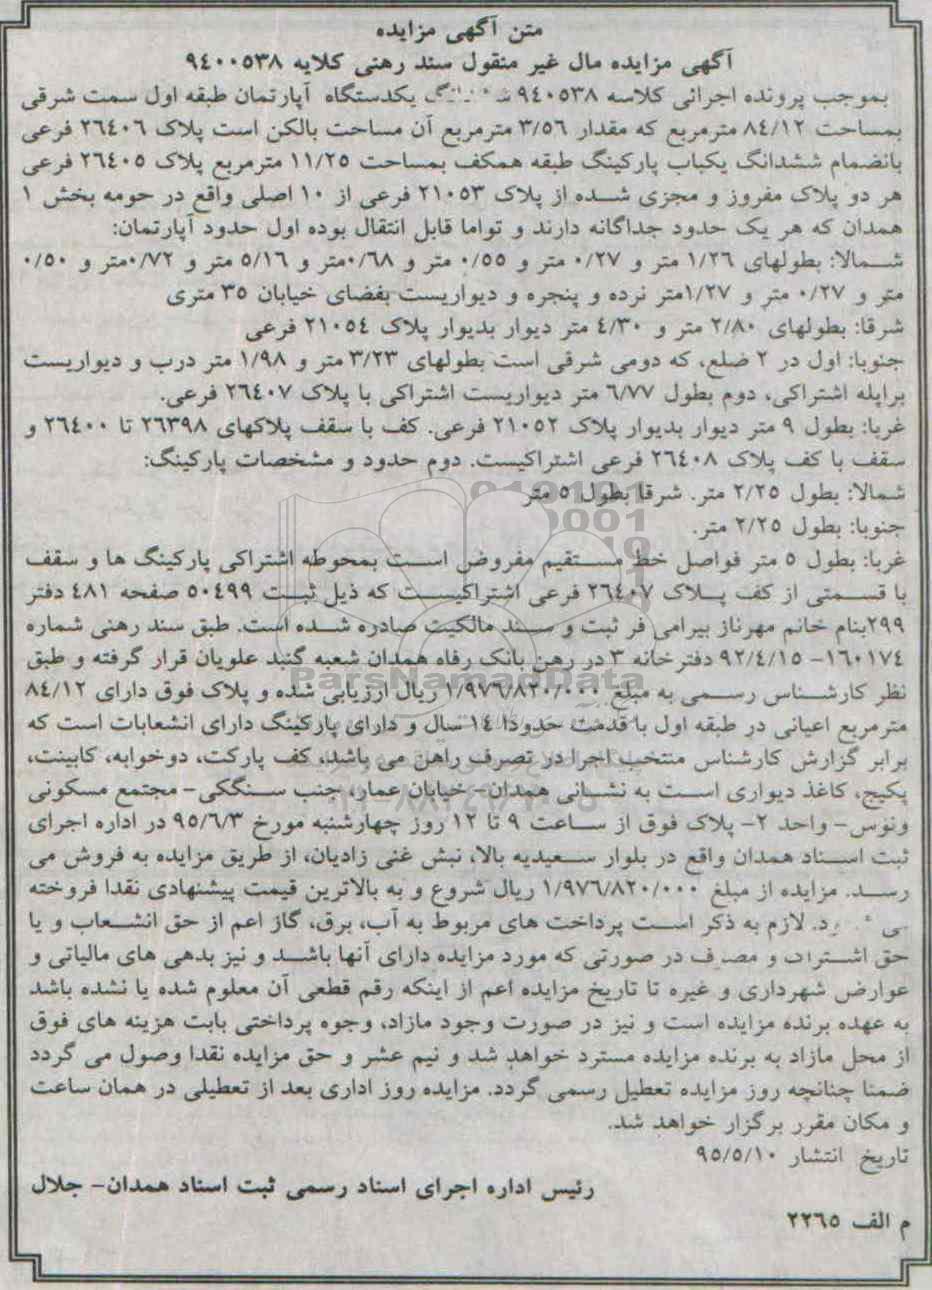 متن آگهی مزایده
آگهی مزایده مال غیر منقول سند رهنی کلایه ٩٤٠٠٥٣٨
بموجب پرونده اجرائی کلاسه ٩٤٠٥٣٨ یکدستگاه آپارتمان طبقه اول سمت شرقی
بمساحت ٨٤/١٢ مترمربع که مقدار ٣/٥٦ مترمربع آن مساحت بالکن است پلاک ٢٦٤٠٦ فرعی
بانضمام ششدانگ یکباب پارکینگ طبقه همکف بمساحت ١١/٢٥ مترمربع پلاک ٢٦٤٠٥ فرعی
هر دو پلاک مفروز و مجزی شده از پلاک ٢١٠٥٣ فرعی از ١٠ اصلی واقع در حومه بخش ١
همدان که هر یک حدود جداگانه دارند و تواما قابل انتقال بوده اول حدود آپارتمان:
شمالا: بطولهای ١/٢٦ متر و ٠/٢٧ متر و ٠/٥٥ متر و ٠/٦٨متر و ٥/١٦ متر و ٠/٧٢متر و ٠/٥٠
متر و ٠/٢٧ متر و ١/٢٧متر نرده و پنجره و دیواریست بفضای خیابان ٣٥ متری
شرقا: بطولهای ٢/٨٠ متر و ٤/٣٠ متر دیوار بدیوار پلاک ٢١٠٥٤ فرعی
جنوبا: اول در ٢ ضلع، که دومی شرقی است بطولهای ٣/٢٣ متر و ١/٩٨ متر درب و دیواریست
براپله اشتراکی، دوم بطول ٦/٧٧ متر دیواریست اشتراکی با پلاک ٢٦٤٠٧ فرعی.
غربا: بطول ٩ متر دیوار بدیوار پلاک ٢١٠٥٢ فرعی. کف با سقف پلاکهای ٢٦٣٩٨ تا ٢٦٤٠٠ و
سقف با کف پلاک ٢٦٤٠٨ فرعی اشتراکیست. دوم حدود و مشخصات پارکینگ:
شمالا: بطول ٢/٢٥ متر. شرقا بطول ٥ متر
جنوبا: بطول ٢/٢٥ متر.
غربا: بطول ٥ متر فواصل خط مستقیم مفروض است بمحوطه اشتراکی پارکینگ ها و سقف
با قسمتی از کف پلاک ٢٦٤٠٧ فرعی اشتراکیست که ذیل ثبت ٥٠٤٩٩ صفحه ٤٨١ دفتر
٢٩٩بنام خانم مهرناز بیرامی فر ثبت و سند مالکیت صادره شده است. طبق سند رهنی شماره
١٦٠١٧٤- ٩٢/٤/١٥ دفترخانه ٣ در رهن بانک رفاه همدان شعبه گنبد علویان قرار گرفته و طبق
نظر کارشناس رسمی به مبلغ ١/٩٧٦/٨٢٠/٠٠٠ ریال ارزیابی شده و پلاک فوق دارای ٨٤/١٢
مترمربع اعیانی در طبقه اول با قدمت حدودا ١٤ سال و دارای پارکینگ دارای انشعابات است که
برابر گزارش کارشناس منتخب اجرا در تصرف راهن می باشد، کف پارکت، دوخوابه، کابینت،
پکیج، کاغذ دیواری است به نشانی همدان- خیابان عمار، جنب سنگکی- مجتمع مسکونی
ونوس- واحد ٢- پلاک فوق از ساعت ٩ تا ١٢ روز چهارشنبه مورخ ٩٥/٦/٣ در اداره اجرای
ثبت اسناد همدان واقع در بلوار سعیدیه بالا، نبش غنی زادیان، از طریق مزایده به فروش می
رسد. مزایده از مبلغ ١/٩٧٦/٨٢٠/٠٠٠ ریال شروع و به بالاترین قیمت پیشنهادی نقدا فروخته
لازم به ذکر است پرداخت های مربوط به آب، برق، گاز اعم از حق انشعاب و یا
حق اشتراک و مصرف در صورتی که مورد مزایده دارای آنها باشد و نیز بدهی های مالیاتی و
عوارض شهرداری و غیره تا تاریخ مزایده اعم از اینکه رقم قطعی آن معلوم شده یا نشده باشد
به عهده برنده مزایده است و نیز در صورت وجود مازاد، وجوه پرداختی بابت هزینه های فوق
از محل مازاد به برنده مزایده مسترد خواهد شد و نیم عشر و حق مزایده نقدا وصول می گردد
ضمنا چنانچه روز مزایده تعطیل رسمی گردد. مزایده روز اداری بعد از تعطیلی در همان ساعت
و مکان مقرر برگزار خواهد شد.
تاریخ انتشار ٩٥/٥/١٠
رئیس اداره اجرای اسناد رسمی ثبت اسناد همدان- جلال
م الف ٢٢٦٥
ParsNamadData